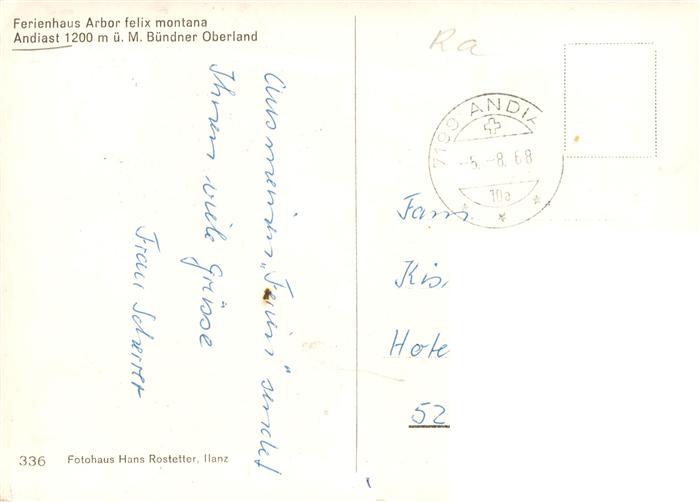 Ferienhaus Arbor felix montana
Andiast 1200 m ü. M. Bündner Oberland
Aus meinen „Ferien" sendet
Ihnen viele Grüsse
Frau Scherrer
336 Fotohaus Hans Rostetter, Ilanz
Ra
7199 ANDIA
-5.-8.68
10a
Fam.
Kis
Hote
52